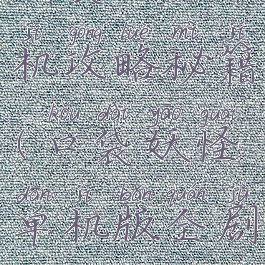 jī gōng lüè mì jí
机攻略秘籍
kǒu dài yāo guài
(口袋妖怪
dān jī bǎn quán jù
单机版全剧